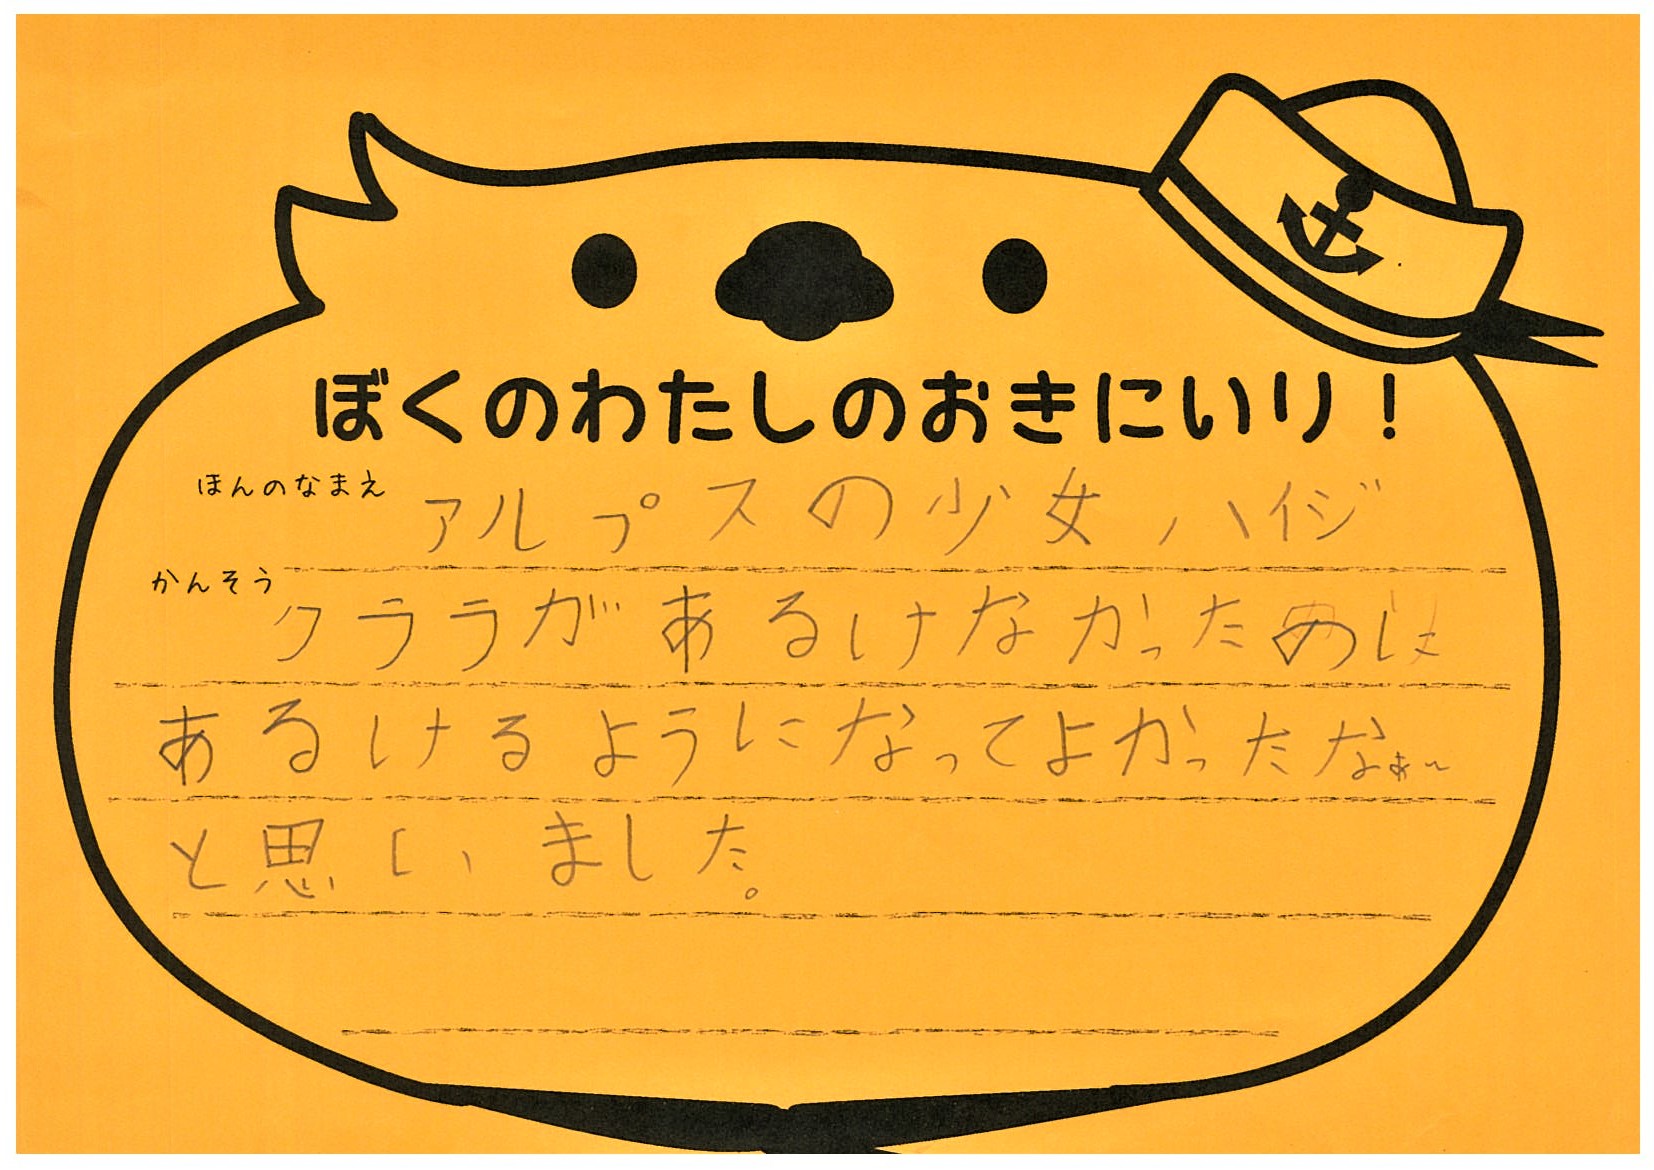 ぼくのわたしのおきにいり！
ほんのなまえ
アルプスの少女ハイジ
かんそう
クララがあるけなかったのは
あるけるようになってよかったなぁ～
と思いました。